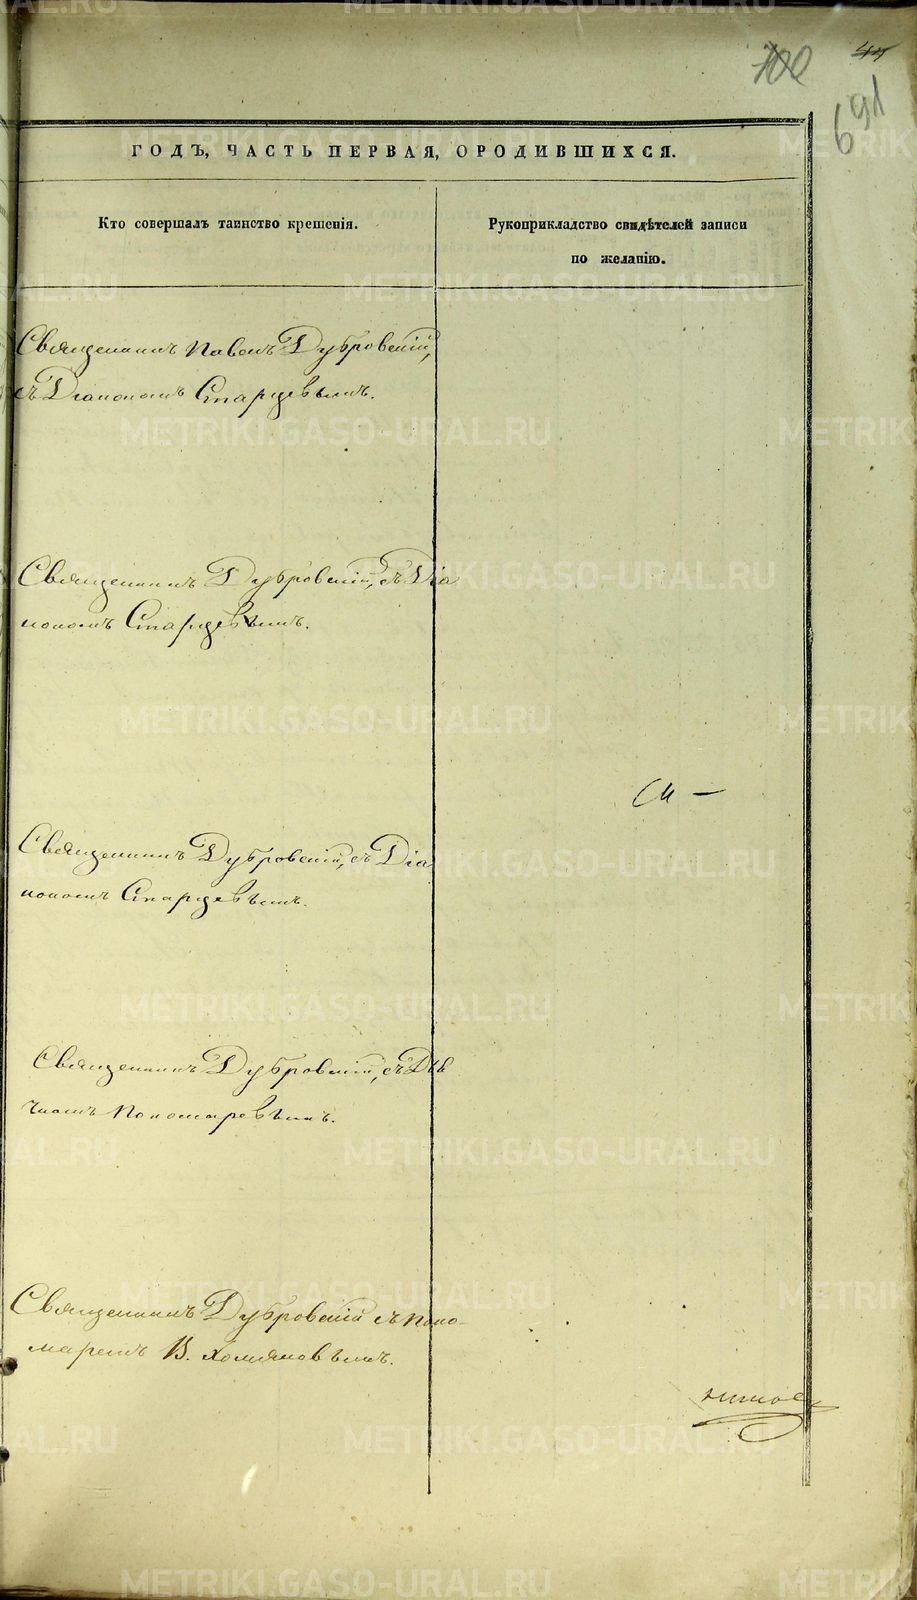 700 44
691
ГОДЪ, ЧАСТЬ ПЕРВАЯ, ОРОДИВШИХСЯ.
Кто совершалъ таинство крещенія.
Рукоприкладство свидѣтелей записи
по желанію.
Священникъ Павелъ Дубровскій,
съ Діакономъ Старцевымъ.
Священникъ Дубровскій, съ Діа
кономъ Старцевымъ.
Священникъ Дубровскій, съ Діа
кономъ Старцевымъ.
Священникъ Дубровскій, съ Дья
чкомъ Пономаревымъ.
Священникъ Дубровскій съ Поно-
маремъ В. Хомяковымъ.
METRIKI.GASO-URAL.RU